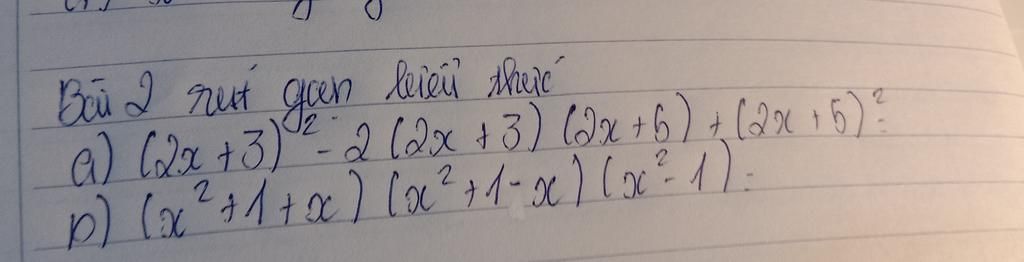 Bài 2 rút gọn biểu thức
a) (2x + 3)² - 2 (2x + 3) (2x + 5) + (2x + 5)²
b) (x² + 1 + x) (x² + 1 - x) (x² - 1)